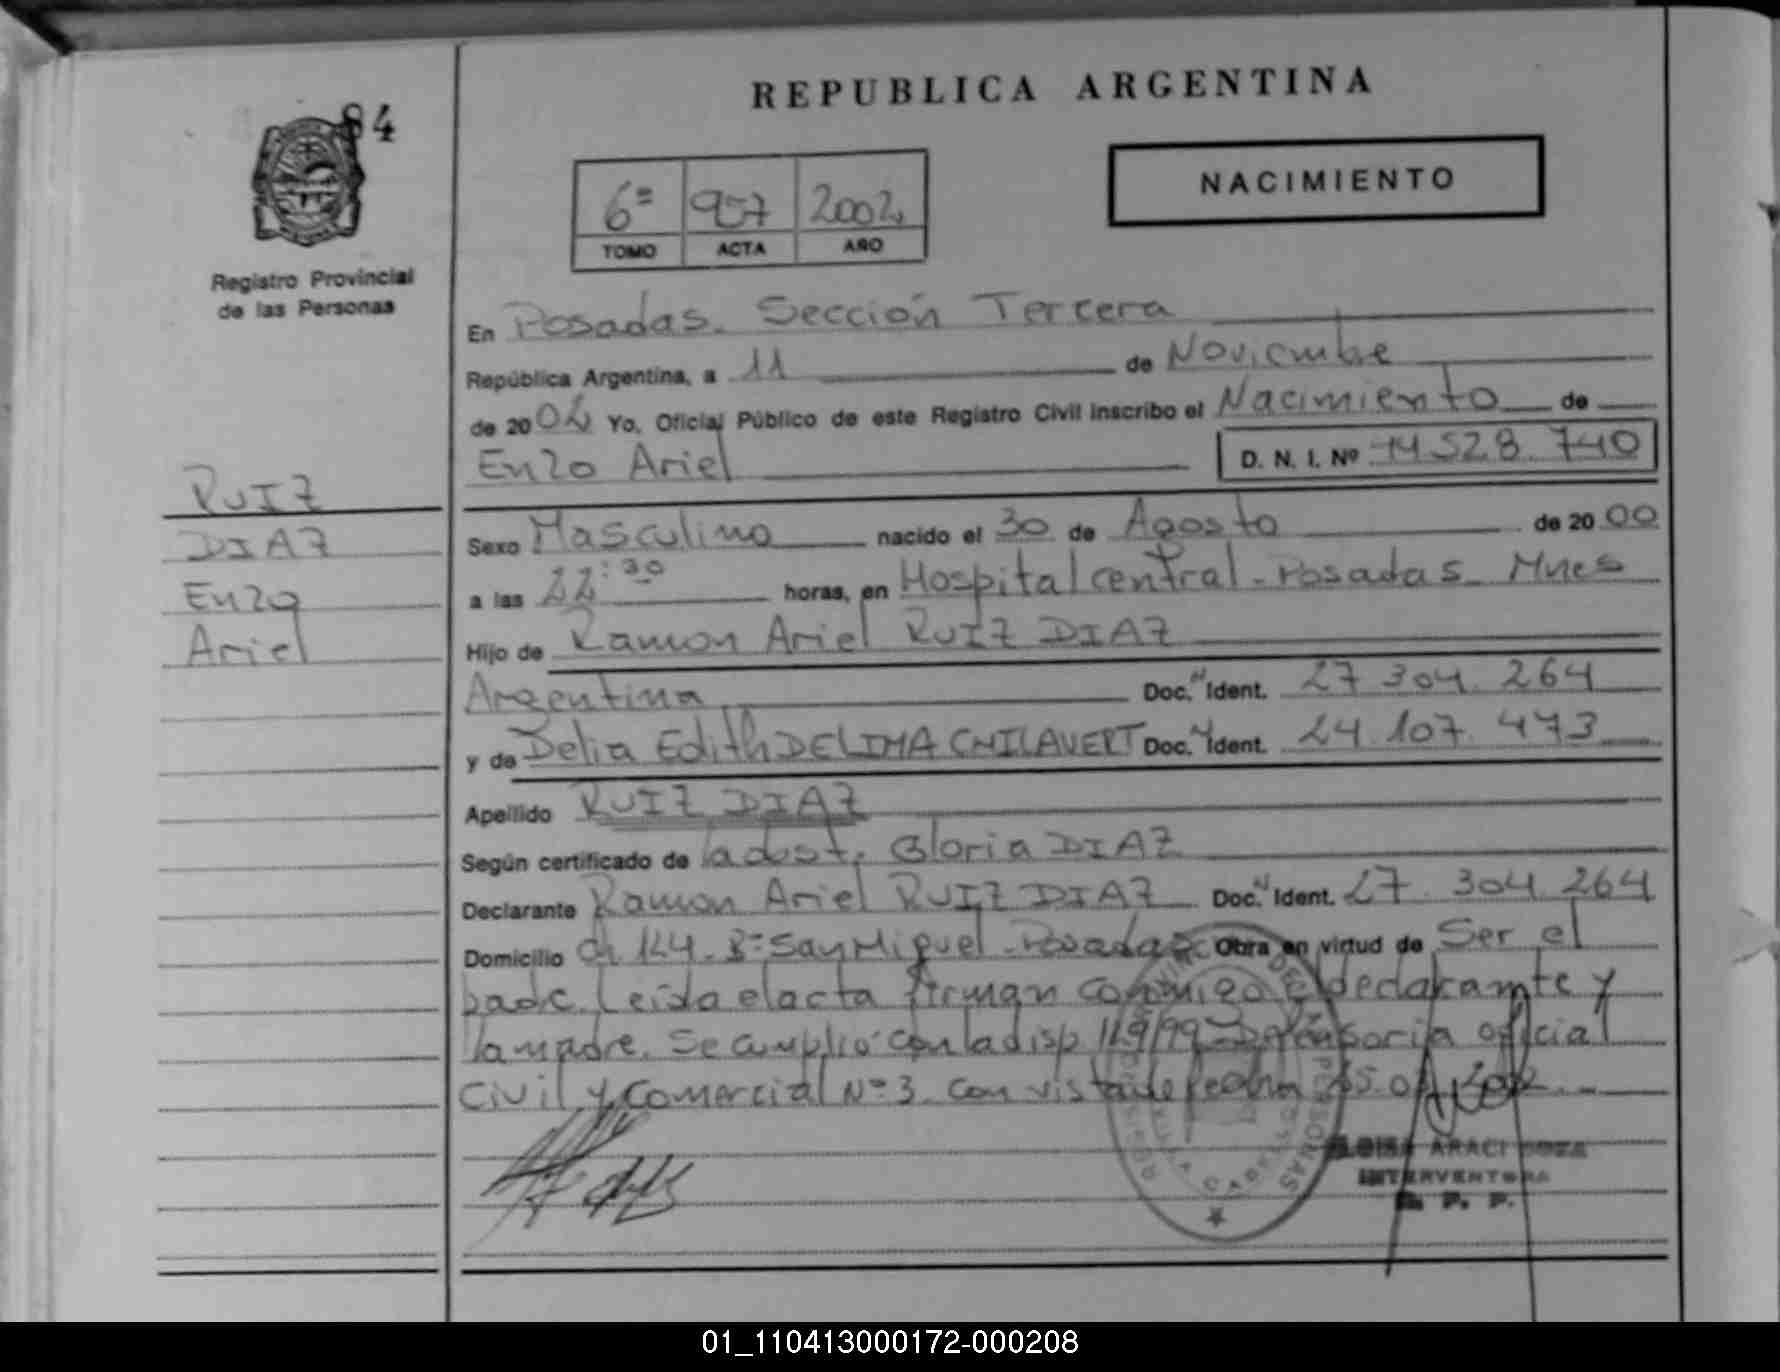 REPUBLICA ARGENTINA
84
NACIMIENTO
6º 957 2002
TOMO ACTA AÑO
Registro Provincial
de las Personas
En Posadas. Sección Tercera
República Argentina, a 11 de Noviembre
de 2002 Yo, Oficial Público de este Registro Civil inscribo el Nacimiento de
Enzo Ariel D. N. I. Nº 44.528.740
RUIZ
DIAZ
Enzo
Ariel
Sexo Masculino nacido el 30 de Agosto de 2000
a las 22:30 horas, en Hospital central - Posadas - Mnes
Hijo de Ramon Ariel RUIZ DIAZ
Argentina Doc. N Ident. 27.304.264
y de Delia Edith DELIMA CHILAVERT Doc. N Ident. 24.107.473
Apellido RUIZ DIAZ
Según certificado de la obst. Gloria DIAZ
Declarante Ramon Ariel RUIZ DIAZ Doc. N Ident. 27.304.264
Domicilio Ch 124. Bº San Miguel - Posadas Obra en virtud de Ser el
padre. Leida el acta firman conmigo el declarante y
la madre. Se cumplió con la disp 119/99 - Defensoria oficial
Civil y Comercial Nº 3. con vista de fecha 2002
ARACI
INTERVENTORA
R. P. P.
01_110413000172-000208